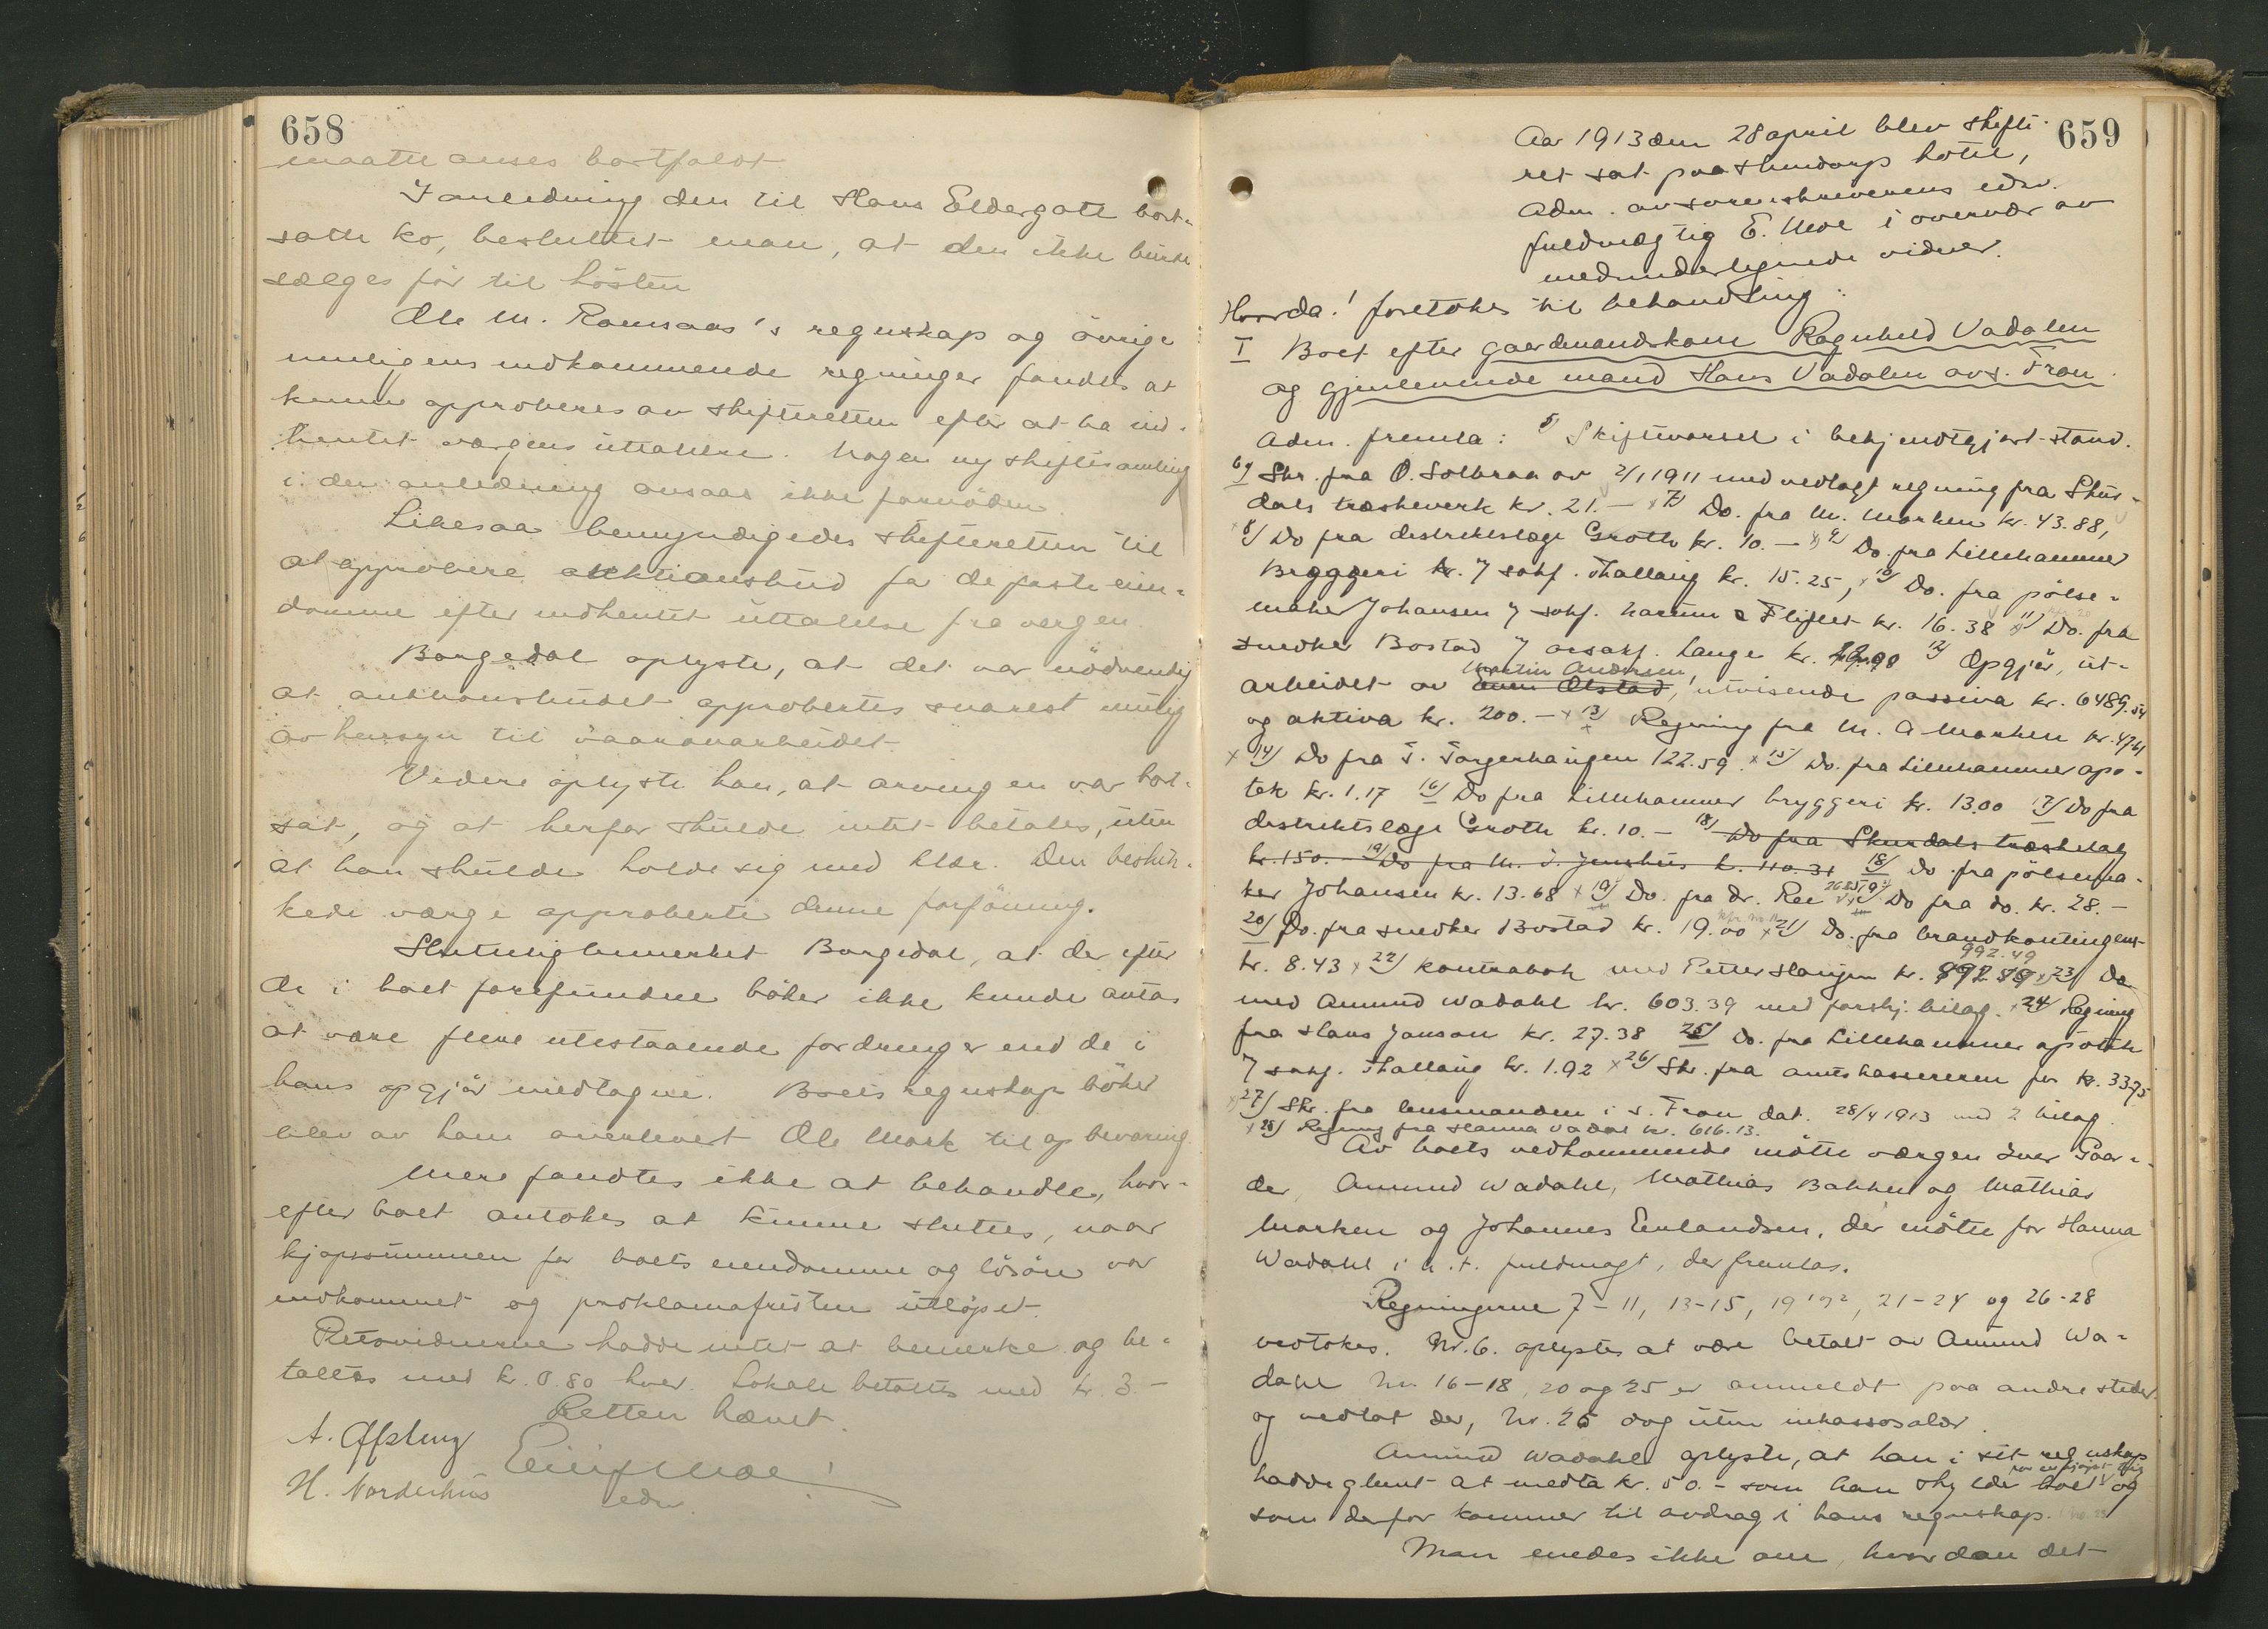 658
maatte anses bortfaldt
I anledning den til Hans Eldergatt bort-
satte ko, besluttet man, at den ikke burde
sælges før til høsten
Ole M. Ramsaas's regnskap og øvrige
muligens indkommende regninger fandtes at
kunne approberes av skifteretten efter at ha ind-
hentet vergens uttalelse. Nogen ny skiftesamling
i den anledning ansaas ikke fornøden.
Likesaa bemyndigedes skifteretten til
at approbere auktionsbud for de faste ein-
domme efter indhentet uttalelse fra vergen.
Borgedal oplyste, at det var nødvendig
at auktionsbudet approbertes snarest mulig
av hensyn til vaaronnarbeidet
Videre oplyste han, at arvingen var bort-
sat, og at herfor skulde intet betales, uten
at han skulde holde sig med klær. Den beskik-
kede værge approberte denne forføining.
Slutteligbemerket Borgedal, at der efter
de i boet forefundne bøker ikke kunde antas
at være flere utestaaende fordringer end de i
hans opgjør medtagne. Boets regnskapsbøker
blev av ham overlevert Ole Mork til opbevaring
Mere fandtes ikke at behandle, hvor-
efter boet antokes at kunne sluttes, naar
kjøpesummen for boets eiendomme og løsøre var
indkommet og proklamafristen utløpet.
Retsvidnerne hadde intet at bemerke og be-
taltes med kr. 0.80 hver. Lokale betaltes med kr. 3.-
Retten hævet.
Einif Moe
edsv
H. Norderhus
659
Aar 1913 den 28 april blev skifte-
ret sat paa Skurdorps hotel,
Adm. av sorenskriverens edsv.
fuldmægtig E. Moe i overvær av
medunderlignende vidner.
Hvorda! foretokes til behandling:
I Boet efter gaardmandskone Ragnhild Vadalen
og gjenlevende mand Hans Vadalen avs. Fron.
Adm. fremla: 5) Skiftevarsel i bekjendtgjort stand.
6) Skr. fra O. Solbraa av 2/1 1911 med vedlagt regning fra Skur-
dals træskeverk kr. 21.- x 7) Do. fra M. Marken kr. 43.88,
x 8) Do fra distriktslæge Groth kr. 10.- x 9) Do. fra Lillehammer
Bryggeri kr. 7 sakf. Thallaug kr. 15.25, x 10) Do. fra pølse-
maker Johansen 7 sakf. Fliflet kr. 16.38 x 11) Do. fra
snedker Bostad 7 ovsakf. Lange kr. 22.98 12) Opgjør, ut-
arbeidet av Even Ølstad, Martin Andersen, utvisende passiva kr. 6489.54
og aktiva kr. 200.- x 13) Regning fra M. A. Marken kr. 47.61
x 14) Do fra T. Torgerhaugen 122.59. x 15) Do. fra Lillehammer apo-
tek kr. 1.17 16) Do fra Lillehammer bryggeri kr. 13.00 17) Do fra
distriktslæge Groth kr. 10.- 18) Do fra Skurdals træskelag
kr. 150.- 19) Do fra M. J. Jenshus kr. 110.31 18) Do. fra pølsema-
ker Johansen kr. 13.68 x 19) Do. fra dr. Ree 26.25, 19²) Do fra do. kr. 28.-
20) Do. fra snedker Bostad kr. 19.00 x 21) Do. fra brandkontingent
kr. 8.43 x 22) kontrabok med Petter Haugen kr. 992.49 x 23) Do
med Amund Wadahl kr. 603.39 med forskj. bilag. x 24) Regning
fra Hans Janson kr. 27.38 25) Do. fra Lillehammer apotek
7 sakf. Thallaug kr. 1.92 x 26) Skr. fra amtskassereren for kr. 33.75
x 27) Skr. fra lensmanden i s. Fron dat. 28/4 1913 med 2 bilag.
x 28) Regning fra Hanna Vadal kr. 616.13.
Av boets vedkommende møtte vergen Iver Gaar-
der, Amund Wadahl, Mathias Bakken og Mathias
Marken og Johannes Erlandsen, der møtte for Hanna
Wadahl i h. t. fuldmagt, der fremlas.
Regningerne 7-11, 13-15, 19 19², 21-24 og 26-28
vedtokes. Nr. 6. oplystes at være betalt av Amund Wa-
dahl Nr. 16-18, 20 og 25 er anmeldt paa andre steder
og vedtat der, Nr. 25 dog uten inkassosalær.
Amund Wadahl oplyste, at han i sit regnskap
hadde glemt at medta kr. 50.- som han skylder boet for en kjøpt og
som derfor kommer til avdrag i hans regnskap.
Man enedes ikke om, hvordan det